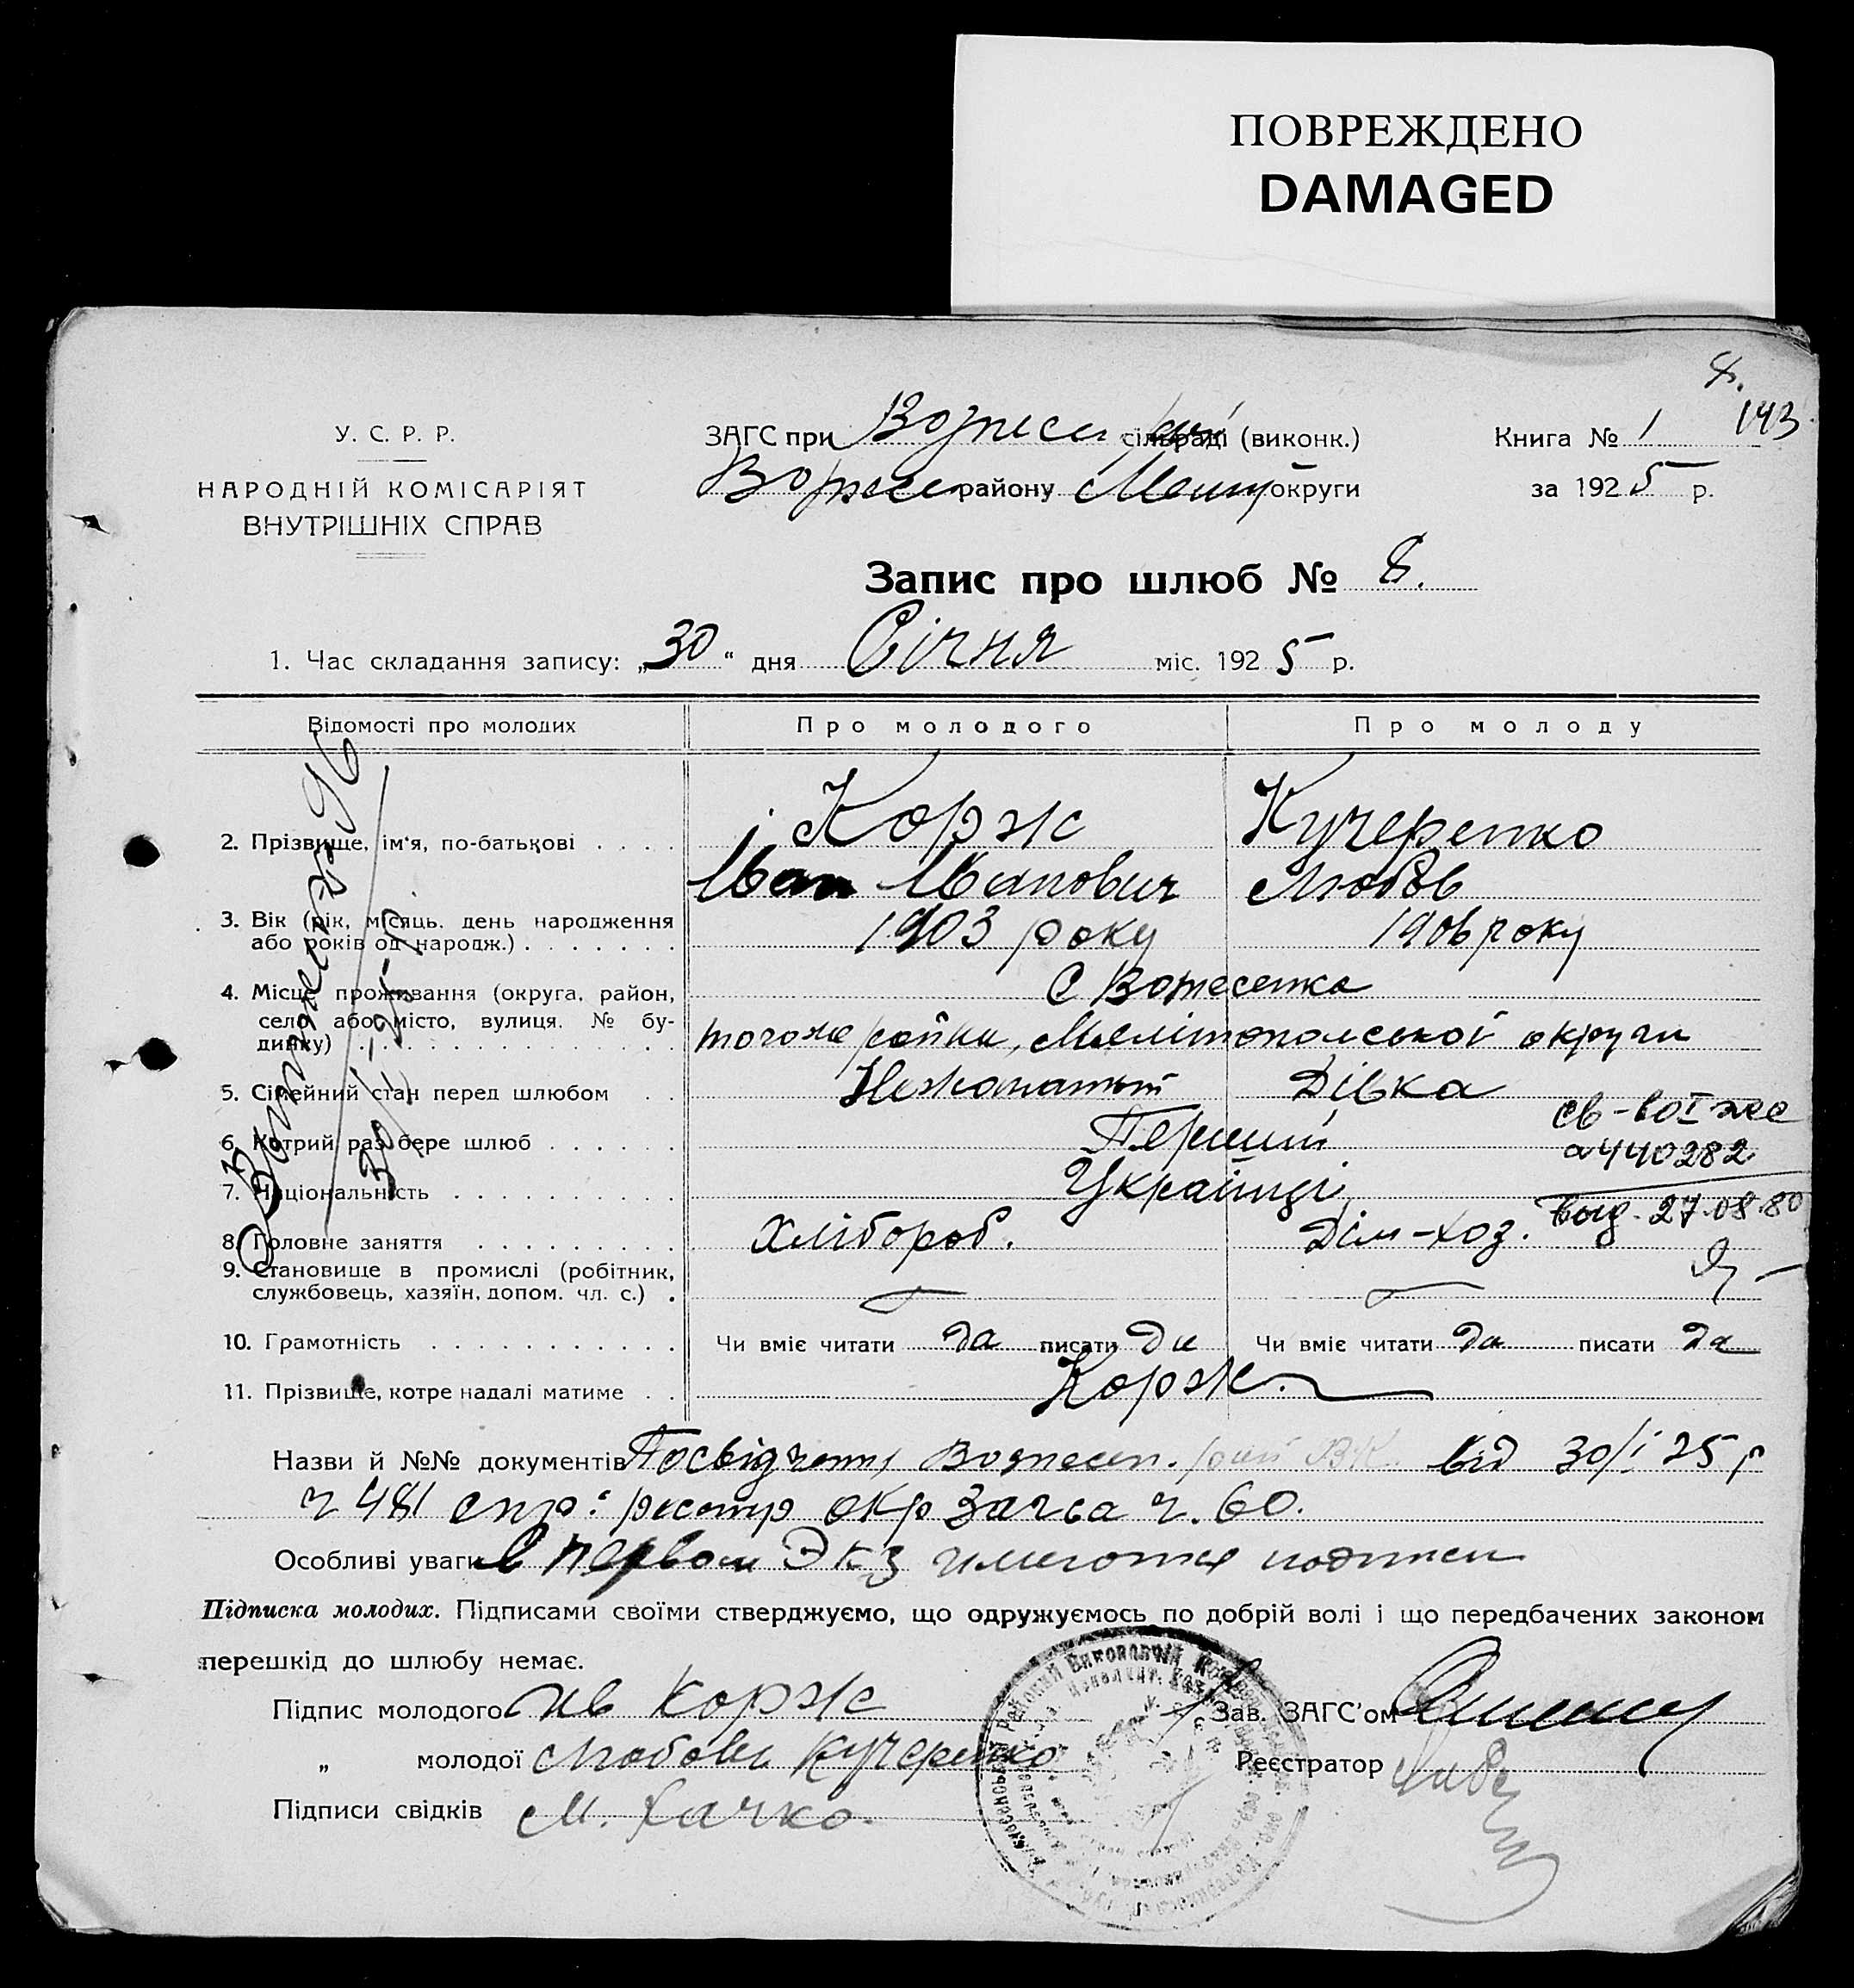 ПОВРЕЖДЕНО
DAMAGED
8.
143
У. С. Р. Р.
НАРОДНІЙ КОМІСАРІЯТ
ВНУТРІШНІХ СПРАВ
ЗАГС при Вознесен сільраді (виконк.)
Вознесен району Меліт округи
Книга № 1
за 1925 р.
Запис про шлюб № 8.
1. Час складання запису: „30“ дня Січня міс. 1925 р.
Відомості про молодих
Про молодого
Про молоду
2. Прізвище, ім'я, по-батькові
Корж
Іван Іванович
Кучеренко
Любов
3. Вік (рік, місяць, день народження
або років од народж.)
1903 року
1906 року
4. Місце проживання (округа, район,
село або місто, вулиця, № бу-
динку)
С Вознесенка
того же району, Мелітопольської округи
5. Сімейний стан перед шлюбом
Нежонатий
Дівка
6. Котрий раз бере шлюб
Перший
7. Національність
Українці
св-во I же
440282
выд. 27.08.80
8. Головне заняття
Хлібороб.
Дом-хоз.
9. Становище в промислі (робітник,
службовець, хазяїн, допом. чл. с.)
10. Грамотність
Чи вміє читати да писати да
Чи вміє читати да писати да
11. Прізвище, котре надалі матиме
Корж.
30/I-25 р.
Назви й №№ документів Посвідчення Вознесен. рай ВК. від 30/I 25 р
ч 481 спр: реєстр окр загса ч. 60.
Особливі уваги В первом Экз имеются подписи
Підписка молодих. Підписами своїми стверджуємо, що одружуємось по добрій волі і що передбачених законом
перешкід до шлюбу немає.
Підпис молодого Ив Корж
„ молодої Любовь Кучеренко
Підписи свідків М.
Зав. ЗАГС'ом
Реєстратор